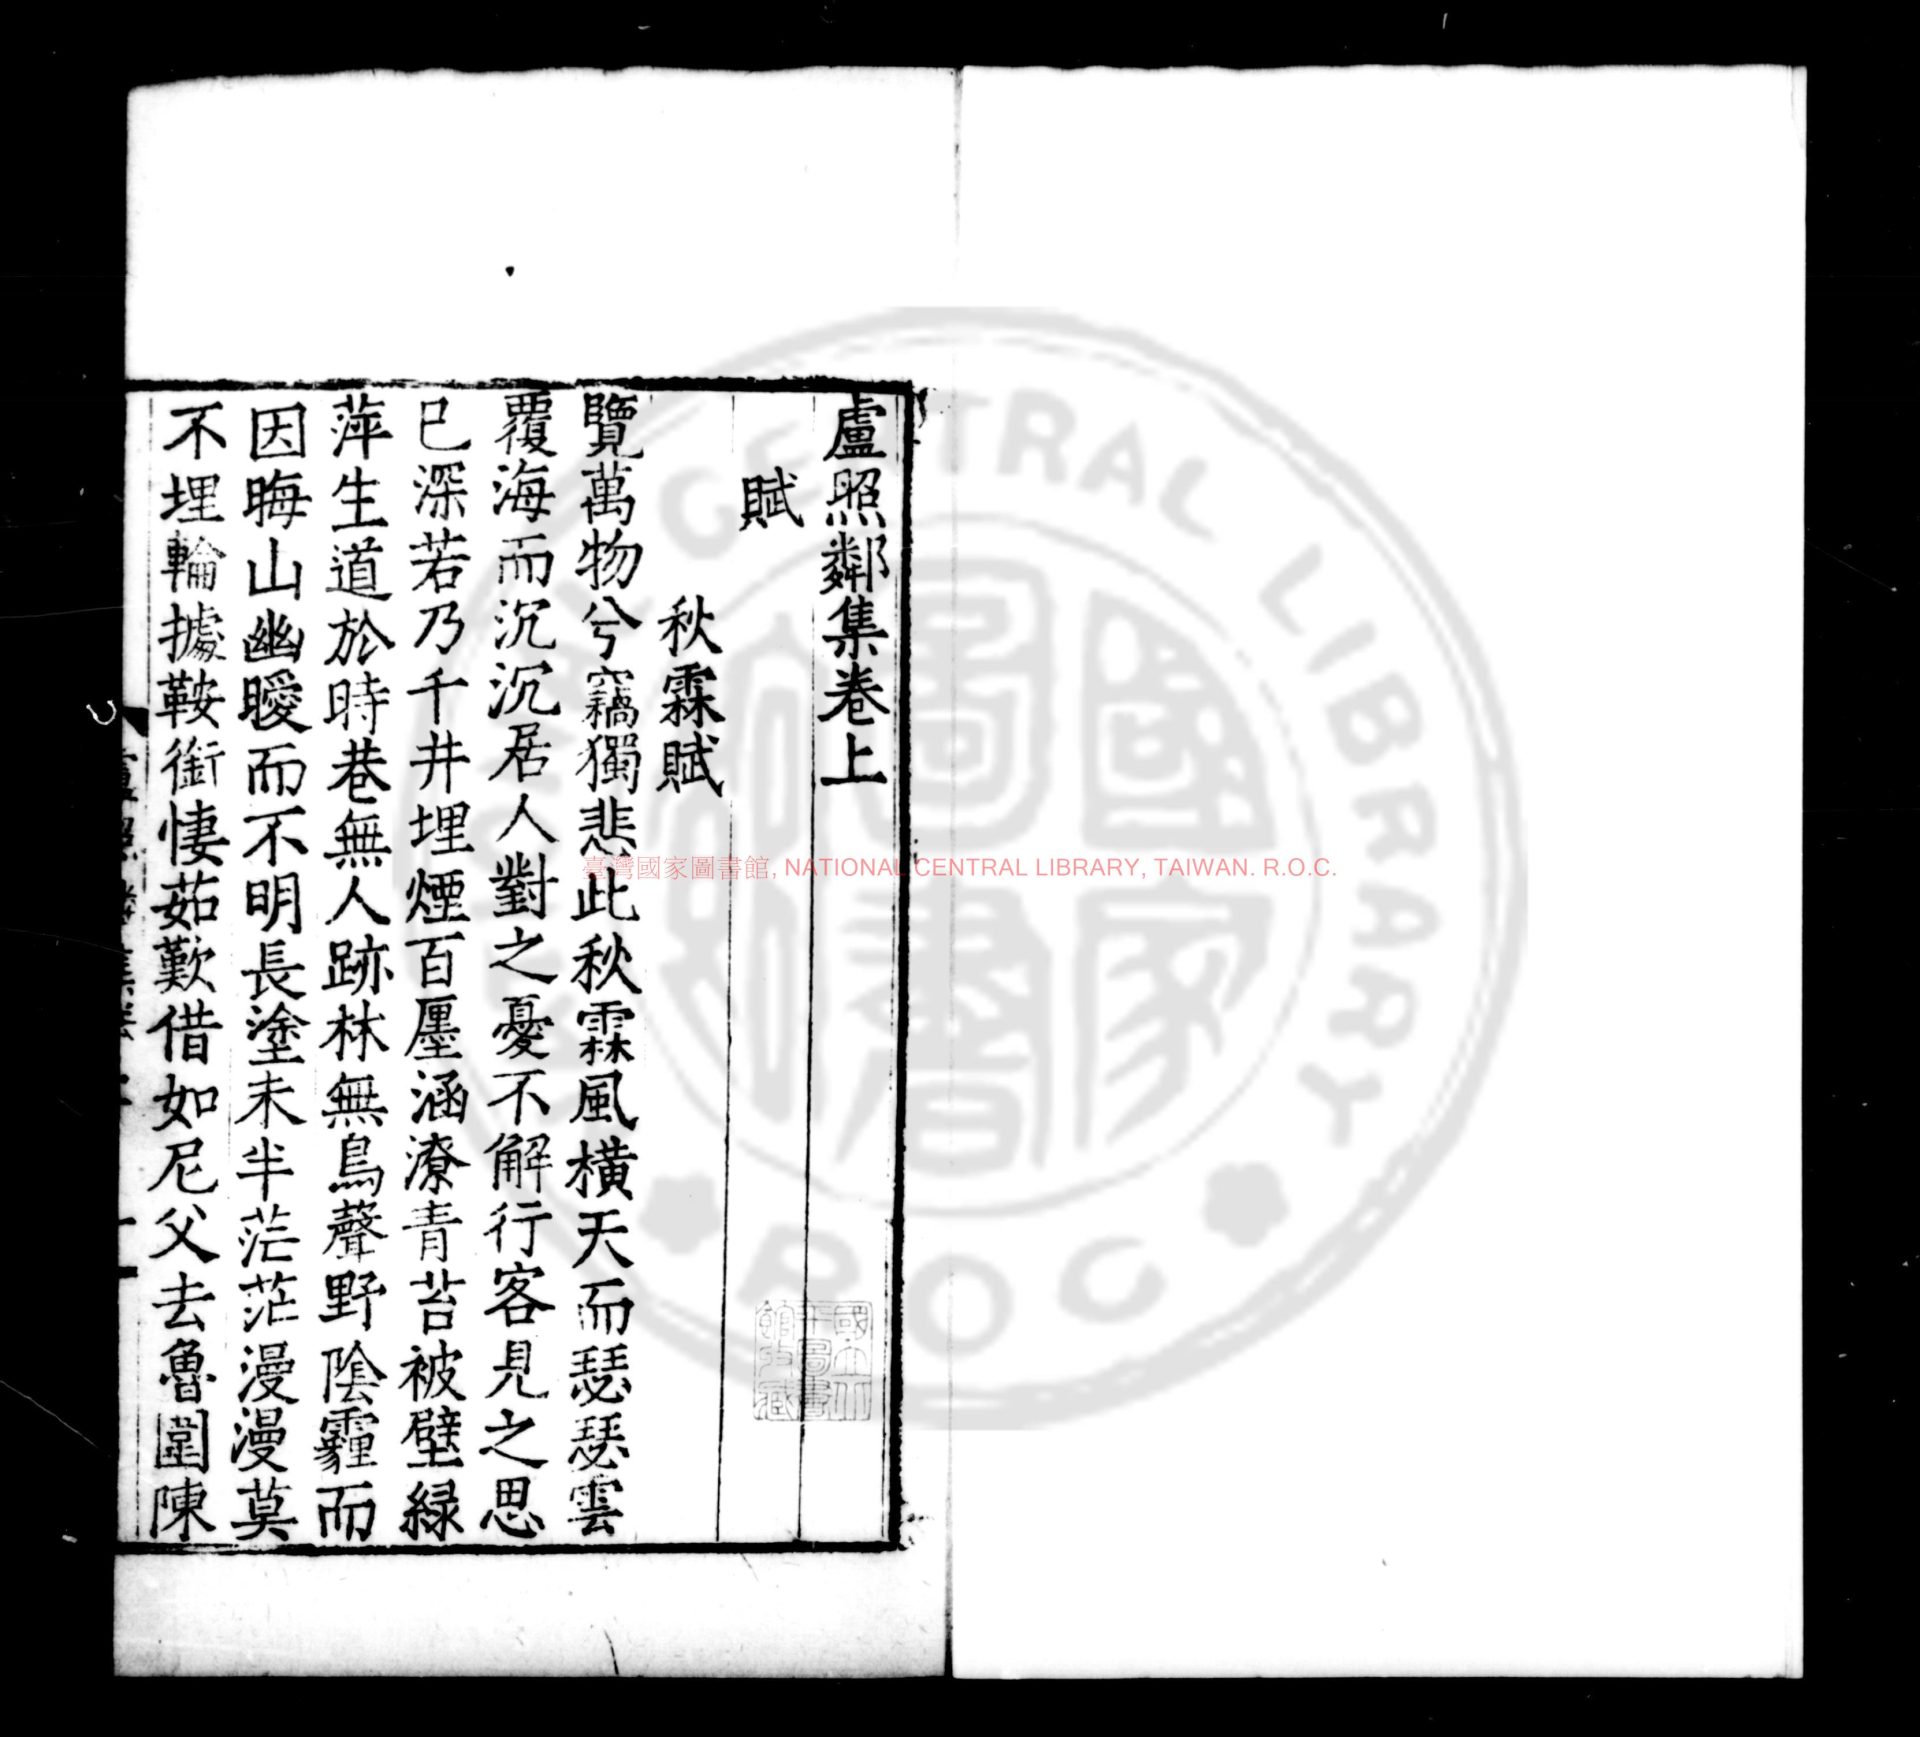 盧照鄰集卷上
賦
秋霖賦
覽萬物兮竊獨悲此秋霖風橫天而瑟瑟雲
覆海而沉沉居人對之憂不解行客見之思
已深若乃千井埋煙百廛涵潦青苔被壁緑
萍生道於時巷無人跡林無鳥聲野陰霾而
因晦山幽曖而不明長塗未半茫茫漫漫莫
不埋輪據鞍銜悽茹歎借如尼父去魯圍陳
臺灣國家圖書館, NATIONAL CENTRAL LIBRARY, TAIWAN. R.O.C.
國家圖書
CENTRAL LIBRARY
ROC
國立中
圖書
館收藏